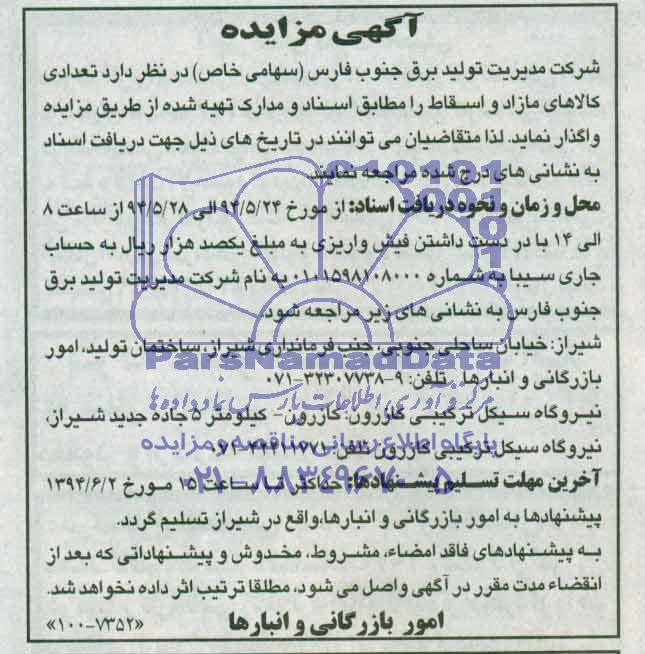 آگهی مزایده
شرکت مدیریت تولید برق جنوب فارس (سهامی خاص) در نظر دارد تعدادی
کالاهای مازاد و اسقاط را مطابق اسناد و مدارک تهیه شده از طریق مزایده
واگذار نماید. لذا متقاضیان می توانند در تاریخ های ذیل جهت دریافت اسناد
به نشانی های درج شده مراجعه نمایند.
محل و زمان و نحوه دریافت اسناد: از مورخ ۹۴/۵/۲۴ الی ۹۴/۵/۲۸ از ساعت ۸
الی ۱۴ با در دست داشتن فیش واریزی به مبلغ یکصد هزار ریال به حساب
جاری سیبا به شماره ۰۱۰۱۵۹۸۱۰۸۰۰۰ به نام شرکت مدیریت تولید برق
جنوب فارس به نشانی های زیر مراجعه شود.
شیراز: خیابان ساحلی جنوبی، جنب فرمانداری شیراز، ساختمان تولید، امور
ParsNamadData
بازرگانی و انبارها تلفن: ۹-۳۲۳۰۷۷۳۸-۰۷۱
مرکز فرآوری اطلاعات پارس نماد داده ها
نیروگاه سیکل ترکیبی کازرون: کازرون- کیلومتر ۵ جاده جدید شیراز،
نیروگاه سیکل ترکیبی کازرون تلفن:
پایگاه اطلاع رسانی مناقصه و مزایده
آخرین مهلت تسلیم پیشنهادها: حداکثر تا ساعت ۱۵ مورخ ۱۳۹۴/۶/۲
۰۲۱-۸۸۳۴۹۶۷۰-۵
پیشنهادها به امور بازرگانی و انبارها، واقع در شیراز تسلیم گردد.
به پیشنهادهای فاقد امضاء، مشروط، مخدوش و پیشنهاداتی که بعد از
انقضاء مدت مقرر در آگهی واصل می شود، مطلقا ترتیب اثر داده نخواهد شد.
امور بازرگانی و انبارها
«۱۰۰-۷۳۵۲»